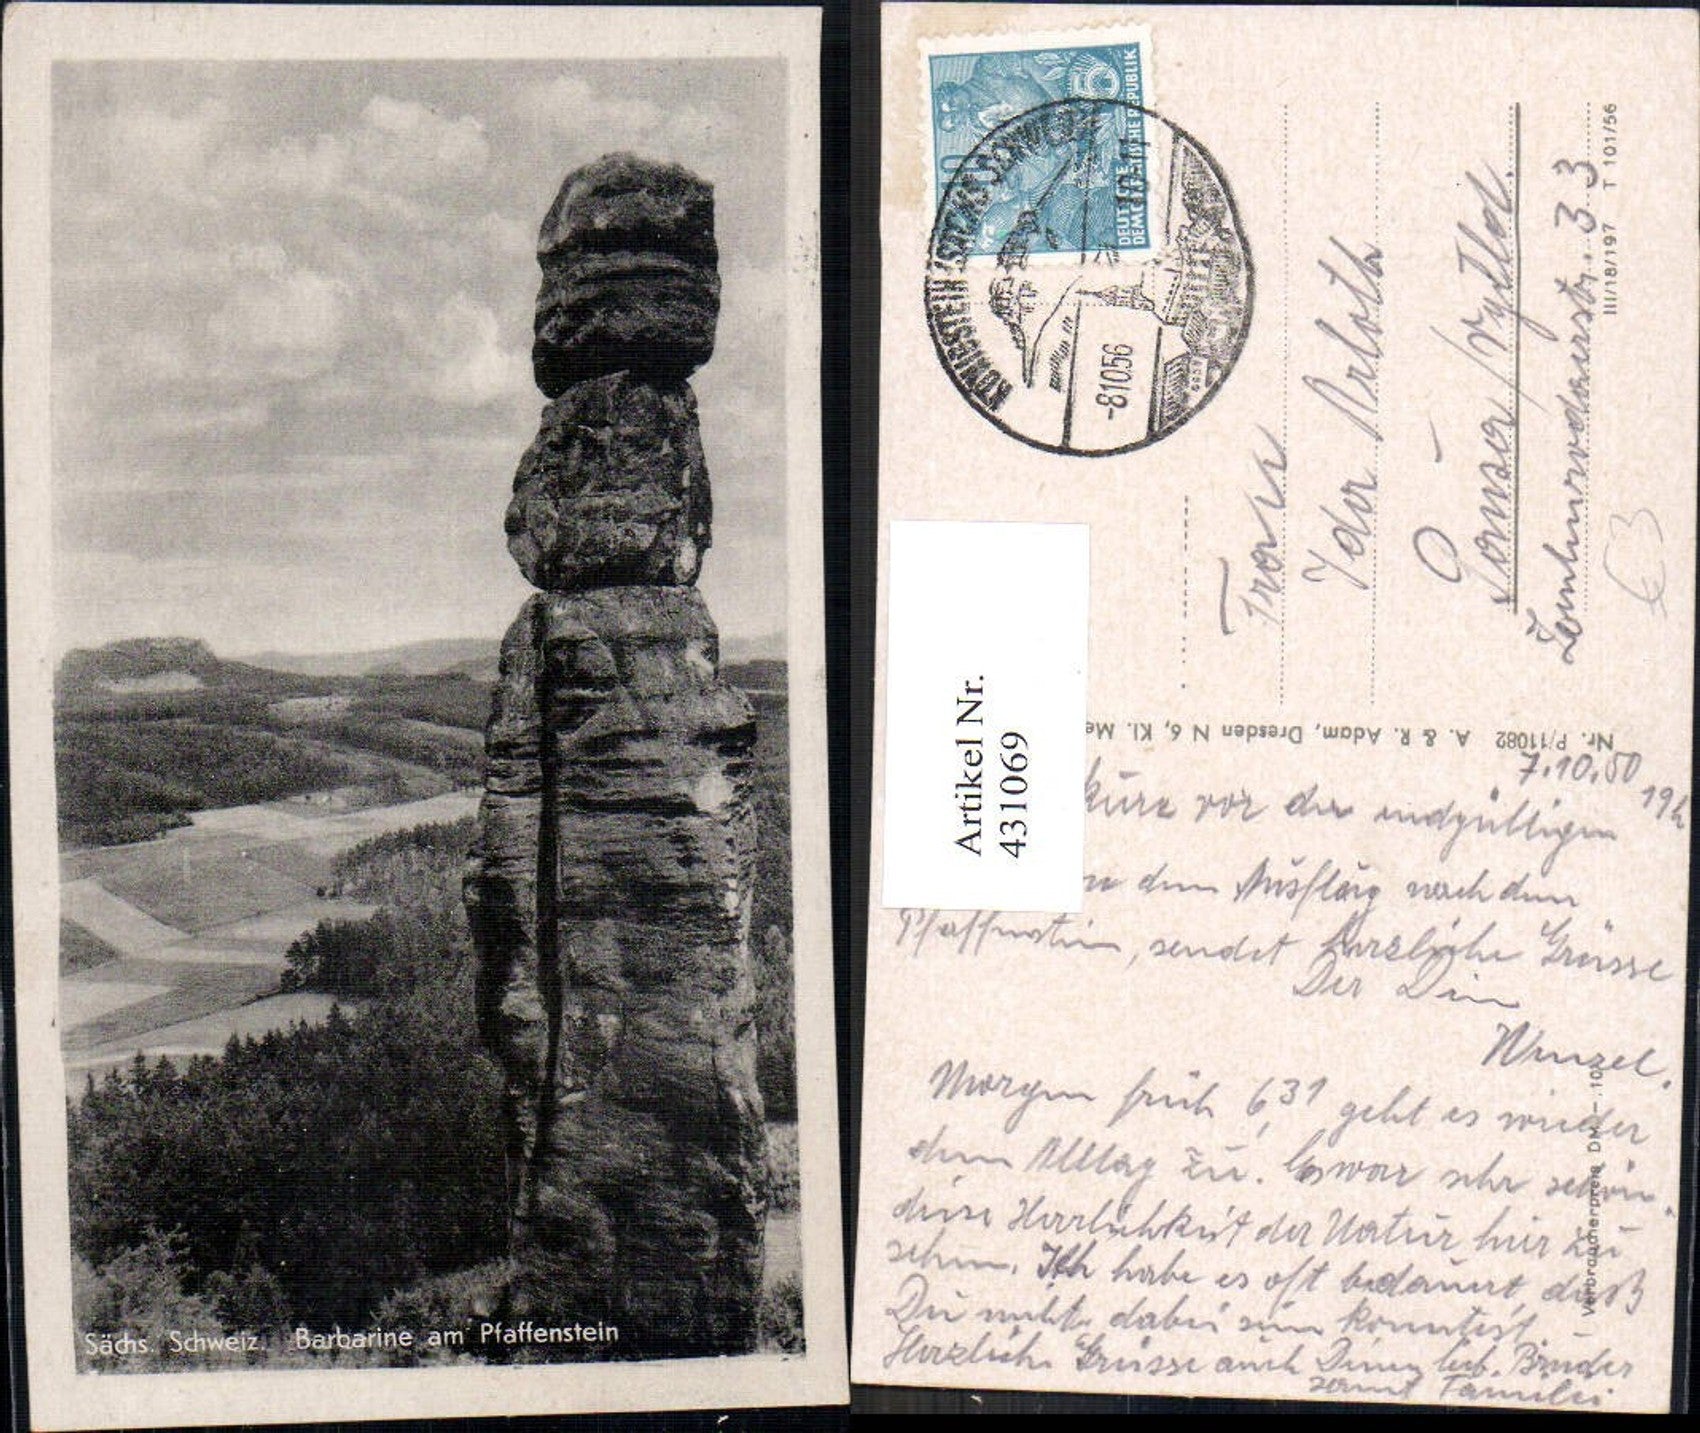 Sächs. Schweiz. Barbarine am Pfaffenstein
Artikel Nr.
431069
5
10
DEUTSCHE
DEMOKRATISCHE REPUBLIK
KÖNIGSTEIN (SÄCHS SCHWEIZ)
-8.10.56
Frau
Ida
33
III/18/197 T 101/56
Nr. P/11082 A. & R. Adam, Dresden N 6, Kl. Me
Verbraucherpreis DM -.10
7.10.
19h
kurz vor der endgültigen
dem Ausflug nach dem
Pfaffenstein, sendet herzliche Grüsse
Der Dein
Wenzel.
Morgen früh 6,31 geht es wieder
dem Alltag zu. Es war sehr schön
diese Herrlichkeit der Natur hier zu
sehen. Ich habe es oft bedauert, daß
Du nicht dabei sein konntest.
Herzliche Grüsse auch Deinen lieb. Bruder
samt Familie